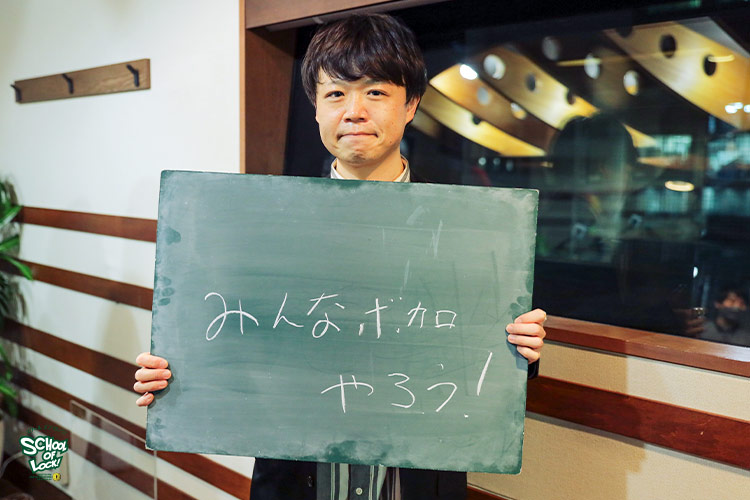 みんなボカロ
やろう!
SCHOOL
OF
LOCK!